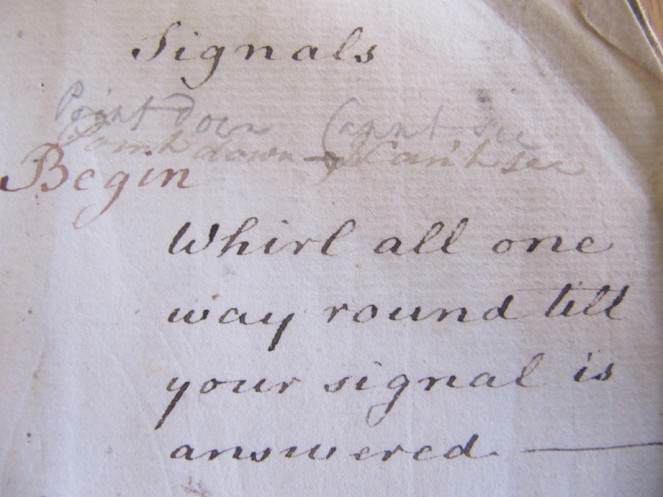 Signals
Point down Cannt see
Point down – Can't see
Begin
Whirl all one
way round till
your signal is
answered —